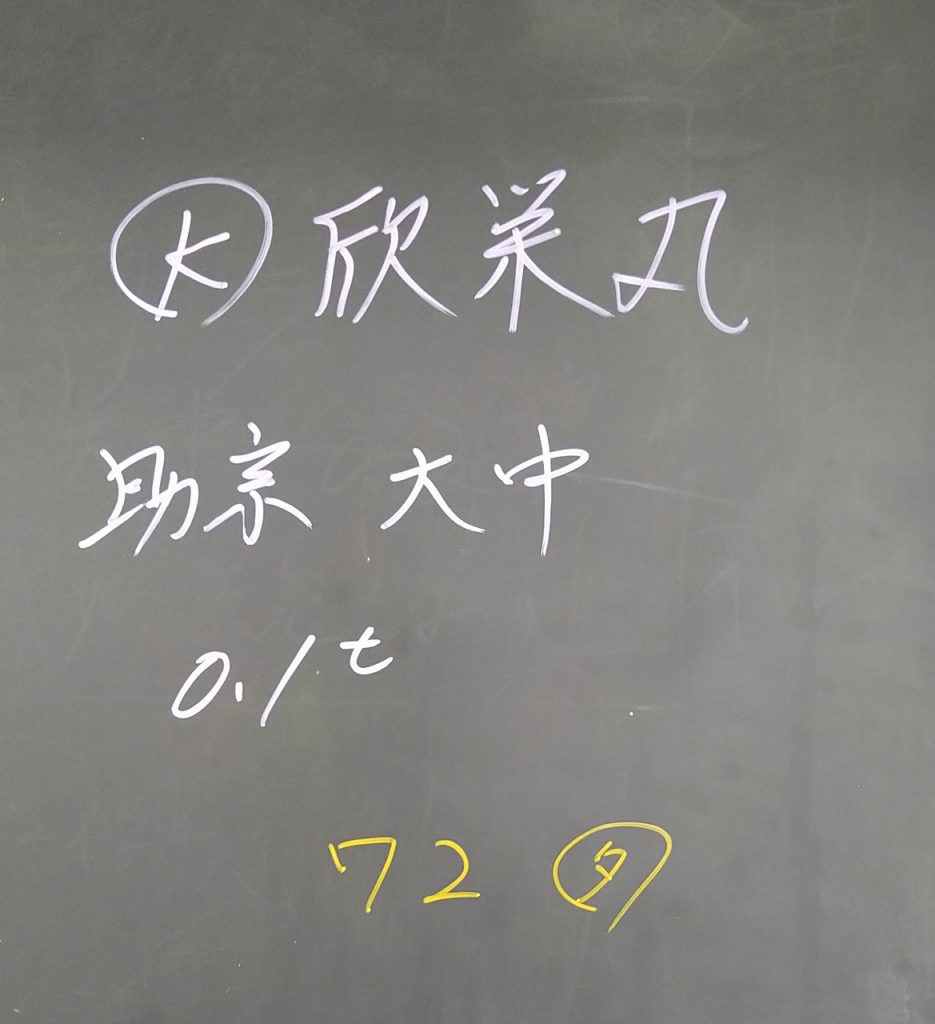 大 欣栄丸
助宗 大中
0.1t
72 タ